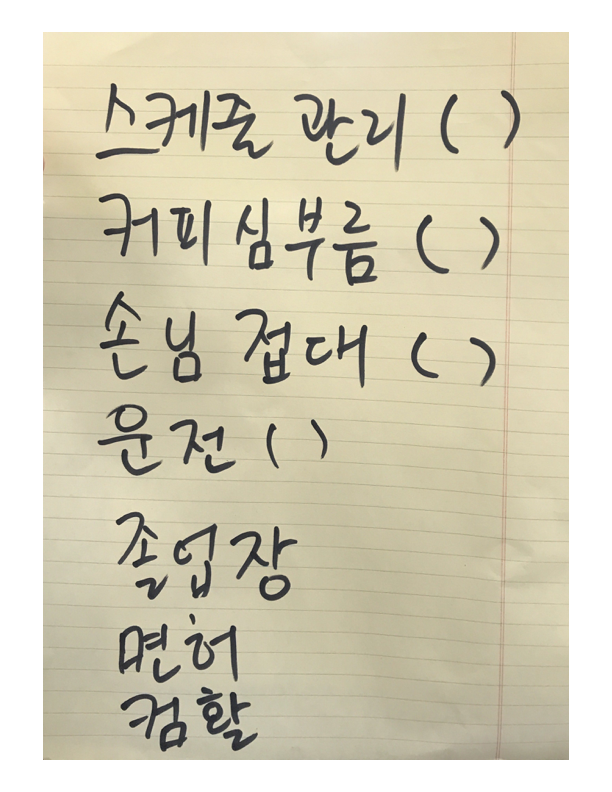 스케줄 관리 ( )
커피 심부름 ( )
손님 접대 ( )
운전 ( )
졸업장
면허
컴활